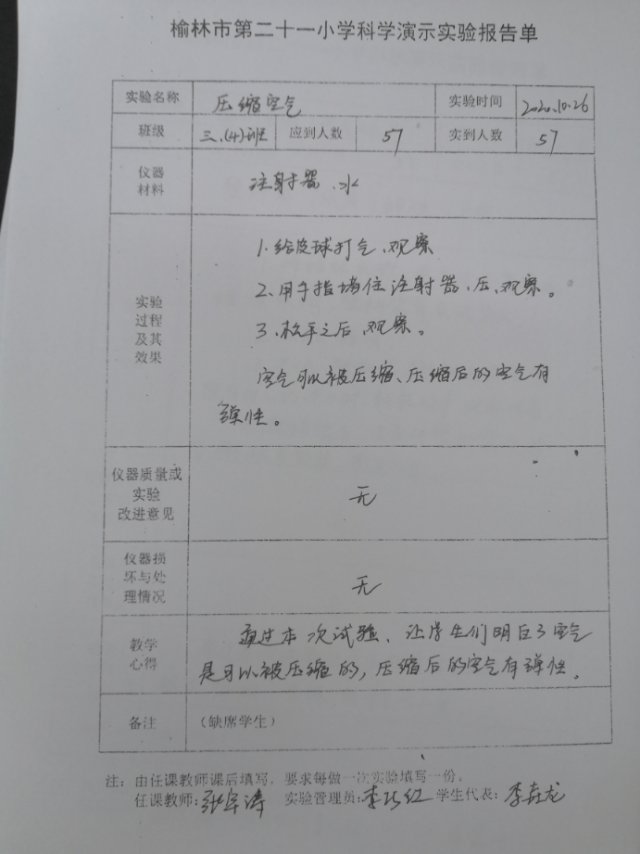 榆林市第二十一小学科学演示实验报告单
实验名称 压缩空气 实验时间 2020.10.26
班级 三.(4)班 应到人数 57 实到人数 57
仪器
材料
注射器、水
实验
过程
及其
效果
1.给皮球打气、观察
2、用手指堵住注射器、压、观察。
3、松手之后、观察。
空气可以被压缩、压缩后的空气有
弹性。
仪器质量或
实验
改进意见
无
仪器损
坏与处
理情况
无
教学
心得
通过本次试验、让学生们明白了空气
是可以被压缩的，压缩后的空气有弹性。
备注 (缺席学生)
注：由任课教师课后填写，要求每做一次实验填写一份。
任课教师： 实验管理员： 学生代表：